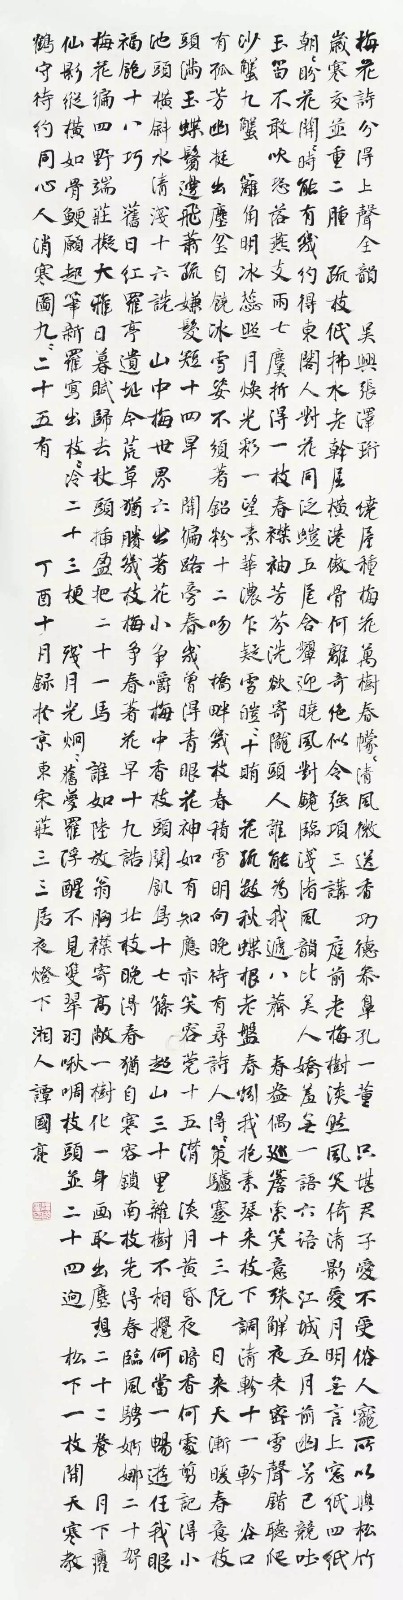 梅花詩分得上聲全韻 吳興張澤珩 繞屋種梅花萬樹春幪〻清風微送香功德參鼻孔一董 只堪君子愛不受俗人寵所以與松竹
歲寒交並重二腫 疏枝低拂水老幹屈橫港傲骨何離奇絕似令強項三講 庭前老梅樹淡然風笑倚清影愛月明無言上窓紙四紙
朝〻盼花開〻時能有幾約得東閣人對花同泛螘五尾 含顰迎曉風對鏡臨淺渚風韻比美人嬌羞無一語六語 江城五月前幽芳已競吐
玉笛不敢吹恐落燕支雨七麌 折得一枝春襟袖芳芬洗欲寄隴頭人誰能為我遞八薺 春盎偶巡簷索笑意殊解夜來密雪聲錯聽爬
沙蟹九蟹 籬角明冰蕊照月煥光彩一望素華濃乍疑雪皚〻十賄 花疏數秋蝶根老盤春蚓我抱素琴來枝下調清軫十一軫 谷口
有孤芳幽挺出塵坌自饒冰雪姿不須著鉛粉十二吻 橋畔幾枝春積雪明向晚待有尋詩人得〻策驢蹇十三阮 日來天漸暖春意枝
頭滿玉蝶鬢邊飛蕭疏嫌髮短十四旱 開徧路旁春幾曾得青眼花神如有知應亦笑容莞十五潸 淡月黃昏夜暗香何處剪記得小
池頭橫斜水清淺十六銑 山中梅世界六出著花小爭嚼梅中香枝頭閧飢鳥十七篠 超山三十里雜樹不相攪何當一暢遊任我眼
福飽十八巧 舊日紅羅亭遺址今荒草猶勝幾枝梅爭春著花早十九皓 北枝晚得春猶自寒容鎖南枝先得春臨風騁婀娜二十哿
梅花徧四野端莊擬大雅日暮賦歸去杖頭插盈把二十一馬 誰如陸放翁胸襟寄高敞一樹化一身画取出塵想二十二養 月下癯
仙影縱橫如骨鯁願起華新羅寫出枝〻冷二十三梗 殘月光炯〻舊夢羅浮醒不見雙翠羽啾啁枝頭並二十四迥 松下一枝開天寒教
鶴守待約同心人消寒圖九〻二十五有 丁酉十月録於京東宋莊三三居夜燈下湘人譚國亮